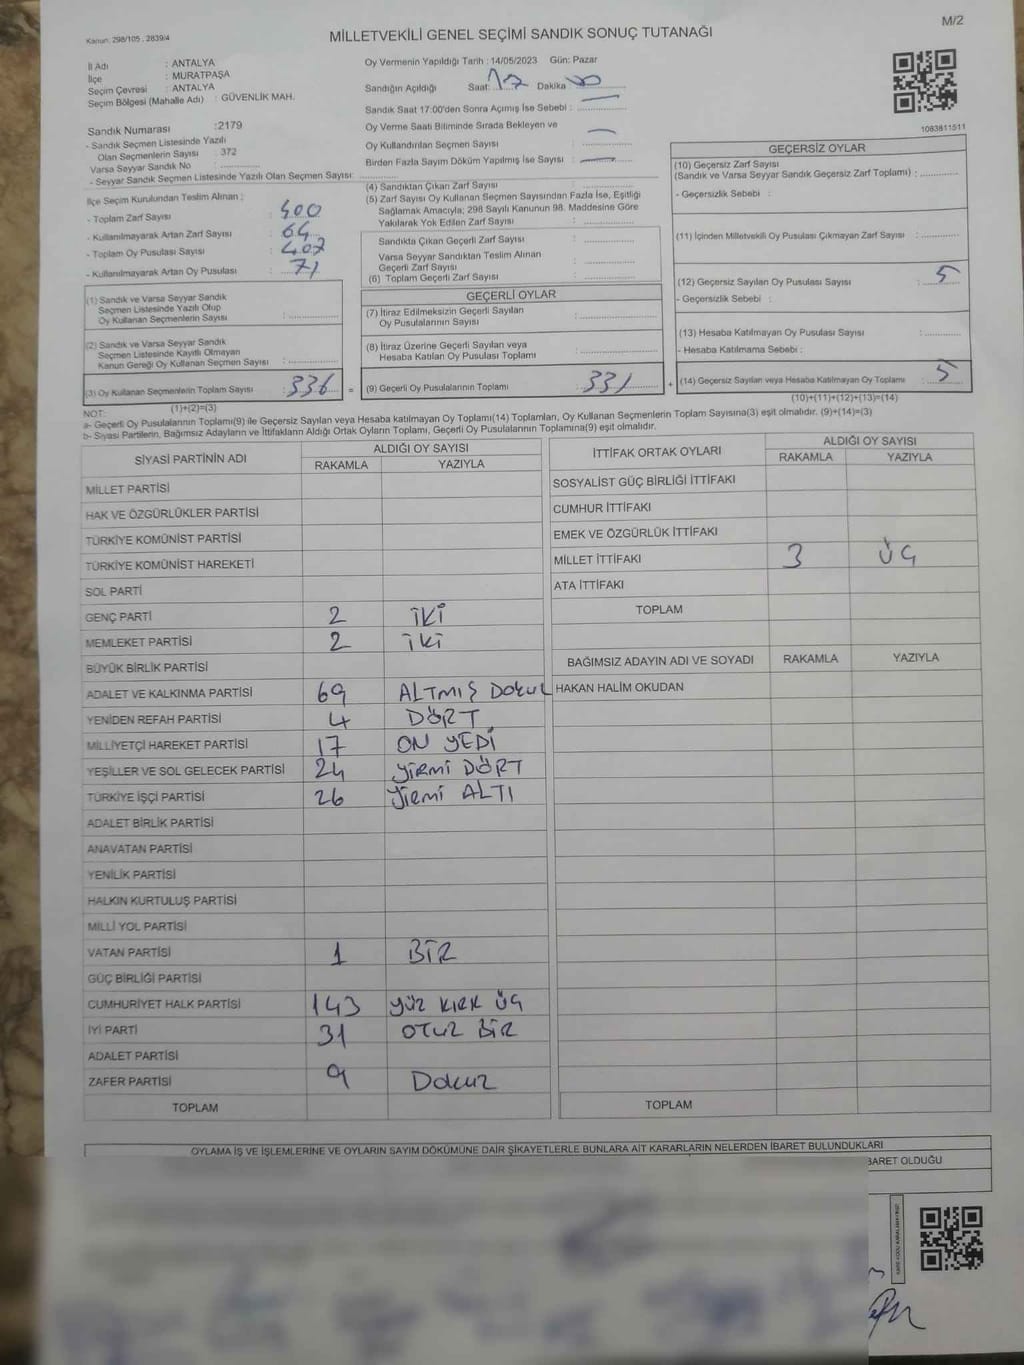 M/2
Kanun: 298/105, 2839/4
MİLLETVEKİLİ GENEL SEÇİMİ SANDIK SONUÇ TUTANAĞI
İl Adı : ANTALYA
İlçe : MURATPAŞA
Seçim Çevresi : ANTALYA
Seçim Bölgesi (Mahalle Adı) : GÜVENLİK MAH.
Sandık Numarası : 2179
- Sandık Seçmen Listesinde Yazılı
Olan Seçmenlerin Sayısı : 372
Varsa Seyyar Sandık No :
- Seyyar Sandık Seçmen Listesinde Yazılı Olan Seçmen Sayısı:
Oy Vermenin Yapıldığı Tarih : 14/05/2023 Gün: Pazar
Sandığın Açıldığı Saat: 17 Dakika: 00
Sandık Saat 17:00'den Sonra Açımış İse Sebebi :
Oy Verme Saati Bitiminde Sırada Bekleyen ve
Oy Kullandırılan Seçmen Sayısı :
Birden Fazla Sayım Döküm Yapılmış İse Sayısı :
1083811511
İlçe Seçim Kurulundan Teslim Alınan ;
- Toplam Zarf Sayısı : 400
- Kullanılmayarak Artan Zarf Sayısı : 64
- Toplam Oy Pusulası Sayısı : 407
- Kullanılmayarak Artan Oy Pusulası : 71
(1) Sandık ve Varsa Seyyar Sandık
Seçmen Listesinde Yazılı Olup
Oy Kullanan Seçmenlerin Sayısı :
(2) Sandık ve Varsa Seyyar Sandık
Seçmen Listesinde Kayıtlı Olmayan
Kanun Gereği Oy Kullanan Seçmen Sayısı :
(3) Oy Kullanan Seçmenlerin Toplam Sayısı : 336 =
(1)+(2)=(3)
(4) Sandıktan Çıkan Zarf Sayısı :
(5) Zarf Sayısı Oy Kullanan Seçmen Sayısından Fazla İse, Eşitliği
Sağlamak Amacıyla; 298 Sayılı Kanunun 98. Maddesine Göre
Yakılarak Yok Edilen Zarf Sayısı :
Sandıkta Çıkan Geçerli Zarf Sayısı :
Varsa Seyyar Sandıktan Teslim Alınan
Geçerli Zarf Sayısı :
(6) Toplam Geçerli Zarf Sayısı :
GEÇERLİ OYLAR
(7) İtiraz Edilmeksizin Geçerli Sayılan
Oy Pusulalarının Sayısı :
(8) İtiraz Üzerine Geçerli Sayılan veya
Hesaba Katılan Oy Pusulası Toplamı :
(9) Geçerli Oy Pusulalarının Toplamı : 331 +
GEÇERSİZ OYLAR
(10) Geçersiz Zarf Sayısı
(Sandık ve Varsa Seyyar Sandık Geçersiz Zarf Toplamı) :
- Geçersizlik Sebebi :
(11) İçinden Milletvekili Oy Pusulası Çıkmayan Zarf Sayısı :
(12) Geçersiz Sayılan Oy Pusulası Sayısı : 5
- Geçersizlik Sebebi :
(13) Hesaba Katılmayan Oy Pusulası Sayısı :
- Hesaba Katılmama Sebebi :
(14) Geçersiz Sayılan veya Hesaba Katılmayan Oy Toplamı : 5
(10)+(11)+(12)+(13)=(14)
NOT:
a- Geçerli Oy Pusulalarının Toplamı(9) ile Geçersiz Sayılan veya Hesaba katılmayan Oy Toplamı(14) Toplamları, Oy Kullanan Seçmenlerin Toplam Sayısına(3) eşit olmalıdır. (9)+(14)=(3)
b- Siyasi Partilerin, Bağımsız Adayların ve İttifakların Aldığı Ortak Oyların Toplamı, Geçerli Oy Pusulalarının Toplamına(9) eşit olmalıdır.
SİYASİ PARTİNİN ADI
ALDIĞI OY SAYISI
RAKAMLA YAZIYLA
MİLLET PARTİSİ
HAK VE ÖZGÜRLÜKLER PARTİSİ
TÜRKİYE KOMÜNİST PARTİSİ
TÜRKİYE KOMÜNİST HAREKETİ
SOL PARTİ
GENÇ PARTİ 2 İKİ
MEMLEKET PARTİSİ 2 İKİ
BÜYÜK BİRLİK PARTİSİ
ADALET VE KALKINMA PARTİSİ 69 ALTMIŞ DOKUZ
YENİDEN REFAH PARTİSİ 4 DÖRT
MİLLİYETÇİ HAREKET PARTİSİ 17 ON YEDİ
YEŞİLLER VE SOL GELECEK PARTİSİ 24 YİRMİ DÖRT
TÜRKİYE İŞÇİ PARTİSİ 26 YİRMİ ALTI
ADALET BİRLİK PARTİSİ
ANAVATAN PARTİSİ
YENİLİK PARTİSİ
HALKIN KURTULUŞ PARTİSİ
MİLLİ YOL PARTİSİ
VATAN PARTİSİ 1 BİR
GÜÇ BİRLİĞİ PARTİSİ
CUMHURİYET HALK PARTİSİ 143 YÜZ KIRK ÜÇ
İYİ PARTİ 31 OTUZ BİR
ADALET PARTİSİ
ZAFER PARTİSİ 9 DOKUZ
TOPLAM
İTTİFAK ORTAK OYLARI
ALDIĞI OY SAYISI
RAKAMLA YAZIYLA
SOSYALİST GÜÇ BİRLİĞİ İTTİFAKI
CUMHUR İTTİFAKI
EMEK VE ÖZGÜRLÜK İTTİFAKI
MİLLET İTTİFAKI 3 ÜÇ
ATA İTTİFAKI
TOPLAM
BAĞIMSIZ ADAYIN ADI VE SOYADI RAKAMLA YAZIYLA
HAKAN HALİM OKUDAN
TOPLAM
OYLAMA İŞ VE İŞLEMLERİNE VE OYLARIN SAYIM DÖKÜMÜNE DAİR ŞİKAYETLERLE BUNLARA AİT KARARLARIN NELERDEN İBARET BULUNDUKLARI
BARET OLDUĞU